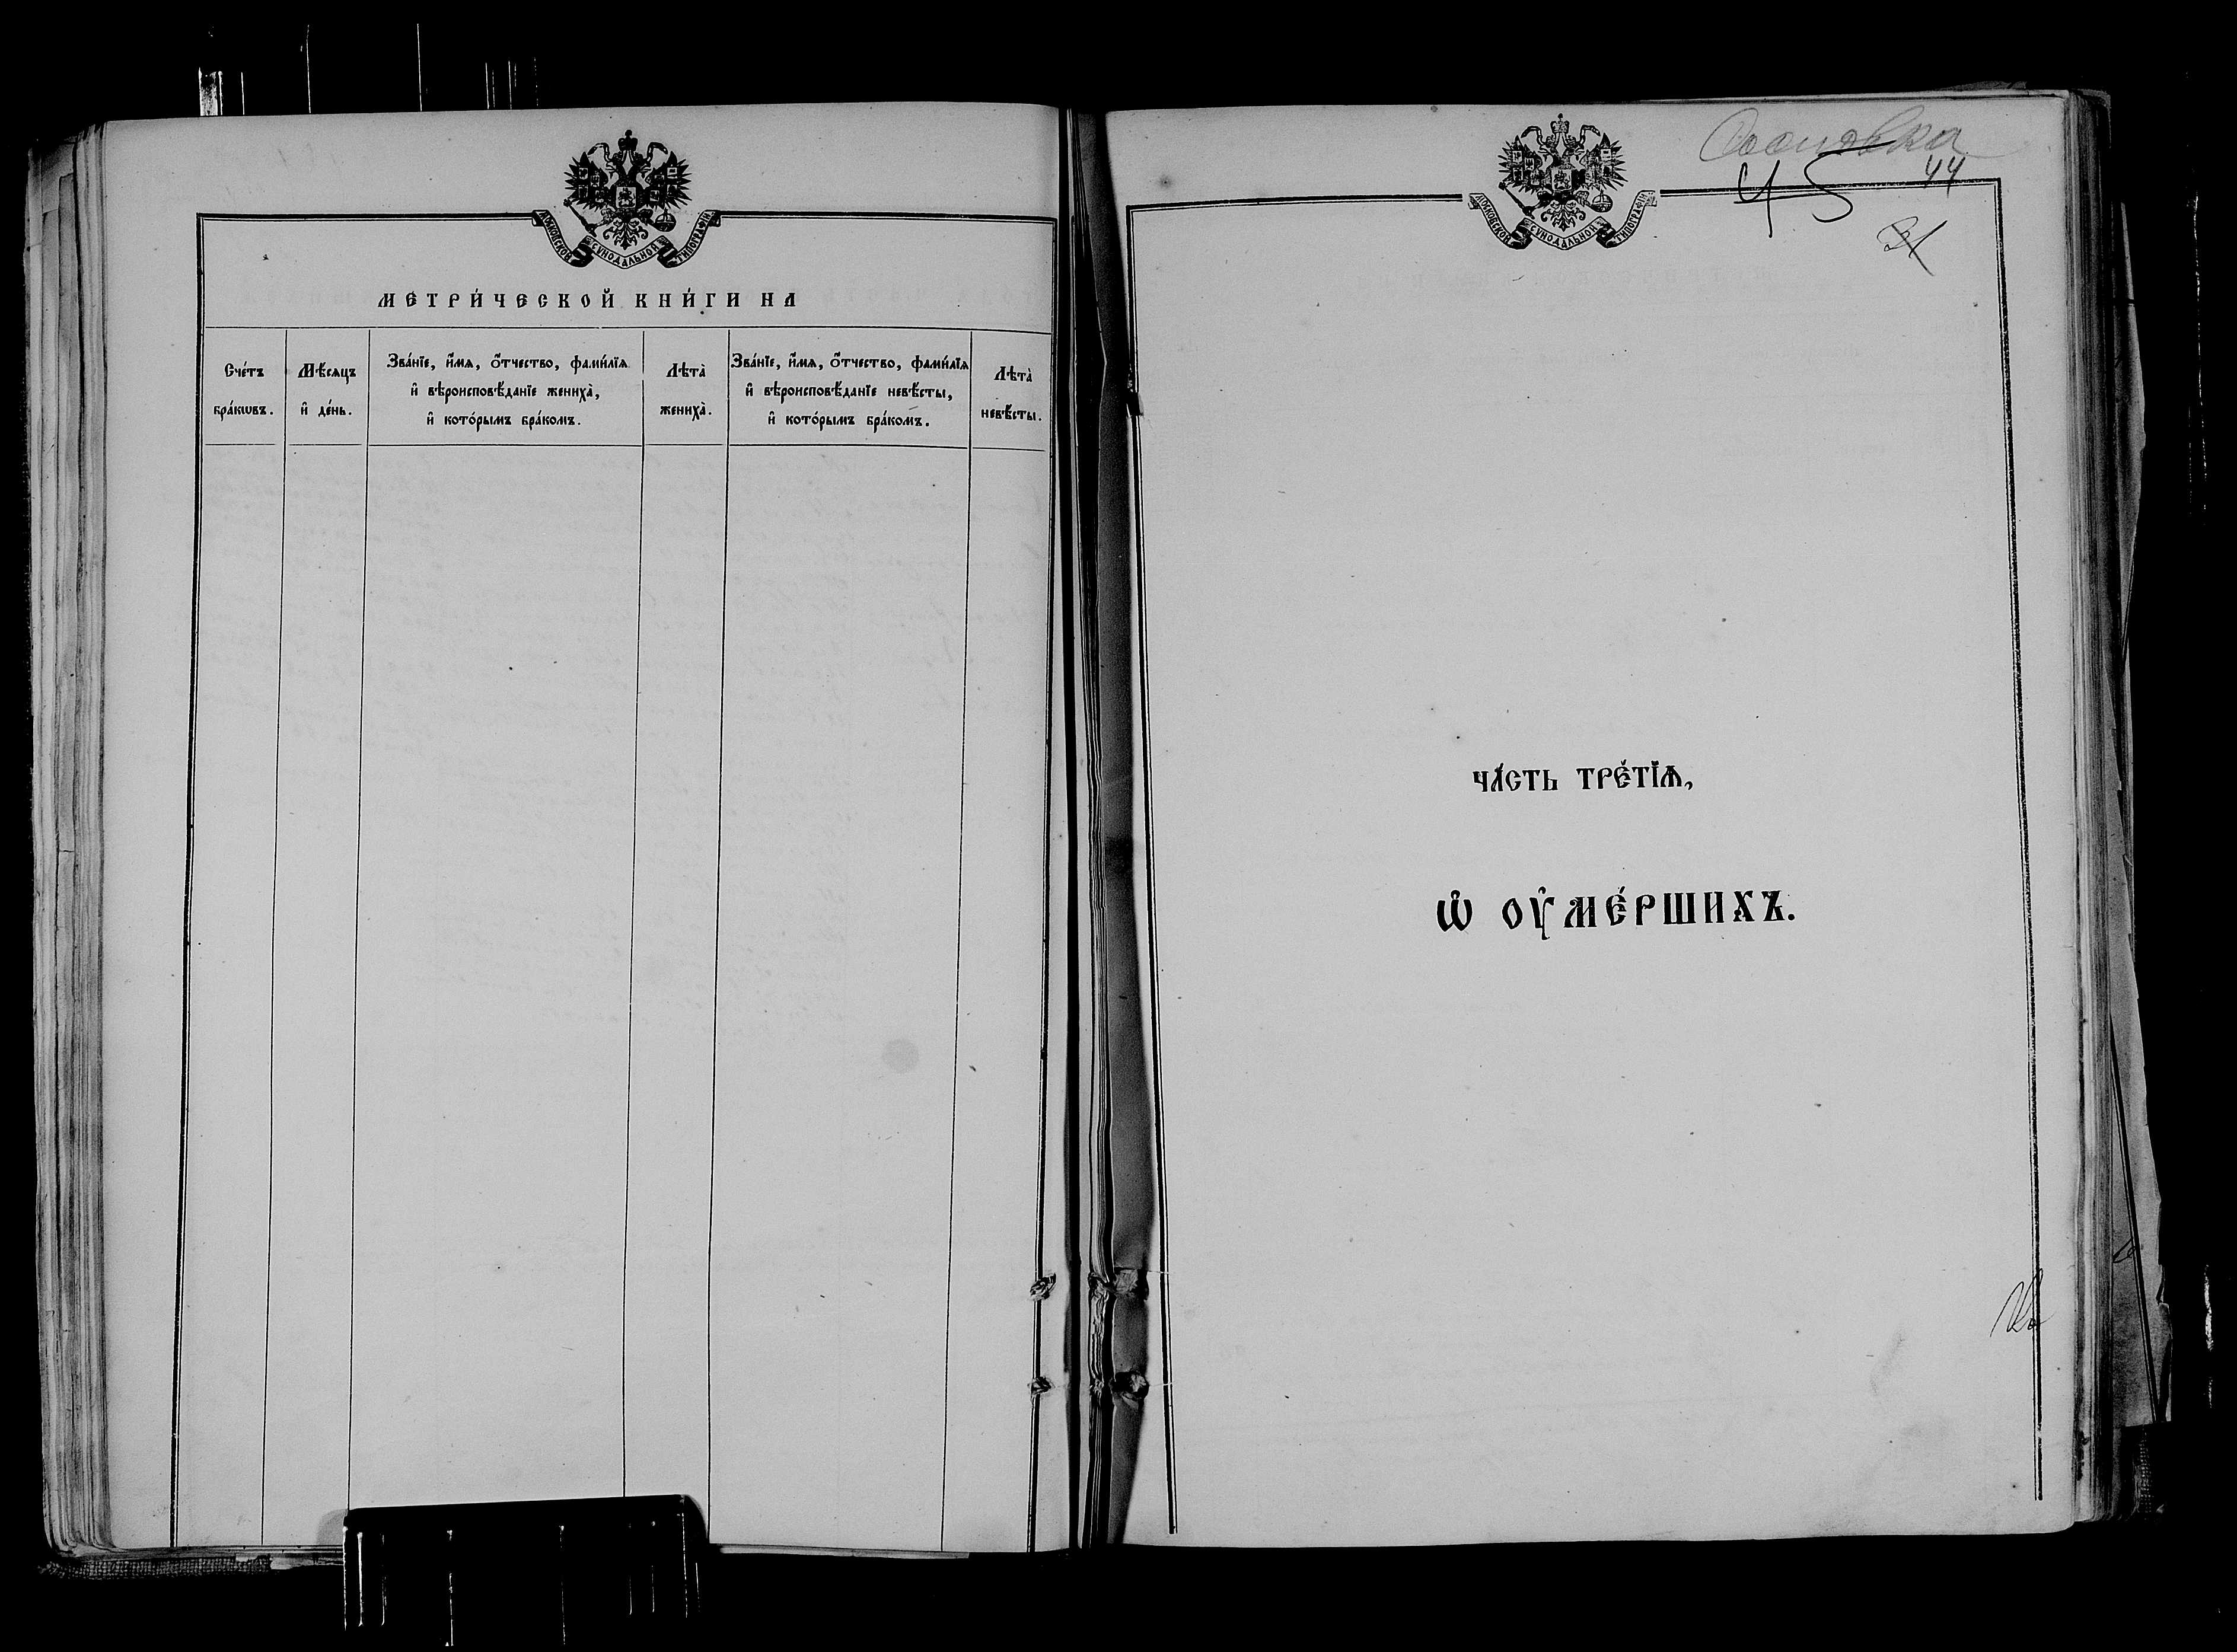 МОСКОВСКОЙ СѴНОДАЛЬНОЙ ТИПОГРАФІИ
МЕТРИ́ЧЕСКОЙ КНИ́ГИ НА
Сче́тъ
бра́кѡвъ.
Мѣ́сяцъ
и҆ де́нь.
Зва́нїе, и҆́мя, ѻ҆́тчество, фами́лїя
и҆ вѣроисповѣ́данїе жениха̀,
и҆ кото́рымъ бра́комъ.
Лѣта̀
жениха̀.
Зва́нїе, и҆́мя, ѻ҆́тчество, фами́лїя
и҆ вѣроисповѣ́данїе невѣ́сты,
и҆ кото́рымъ бра́комъ.
Лѣта̀
невѣ́сты.
МОСКОВСКОЙ СѴНОДАЛЬНОЙ ТИПОГРАФІИ
45
44
31
ЧА́СТЬ ТРЕ́ТЇѦ,
Ѡ҆ ОУ҆МЕ́РШИХЪ.